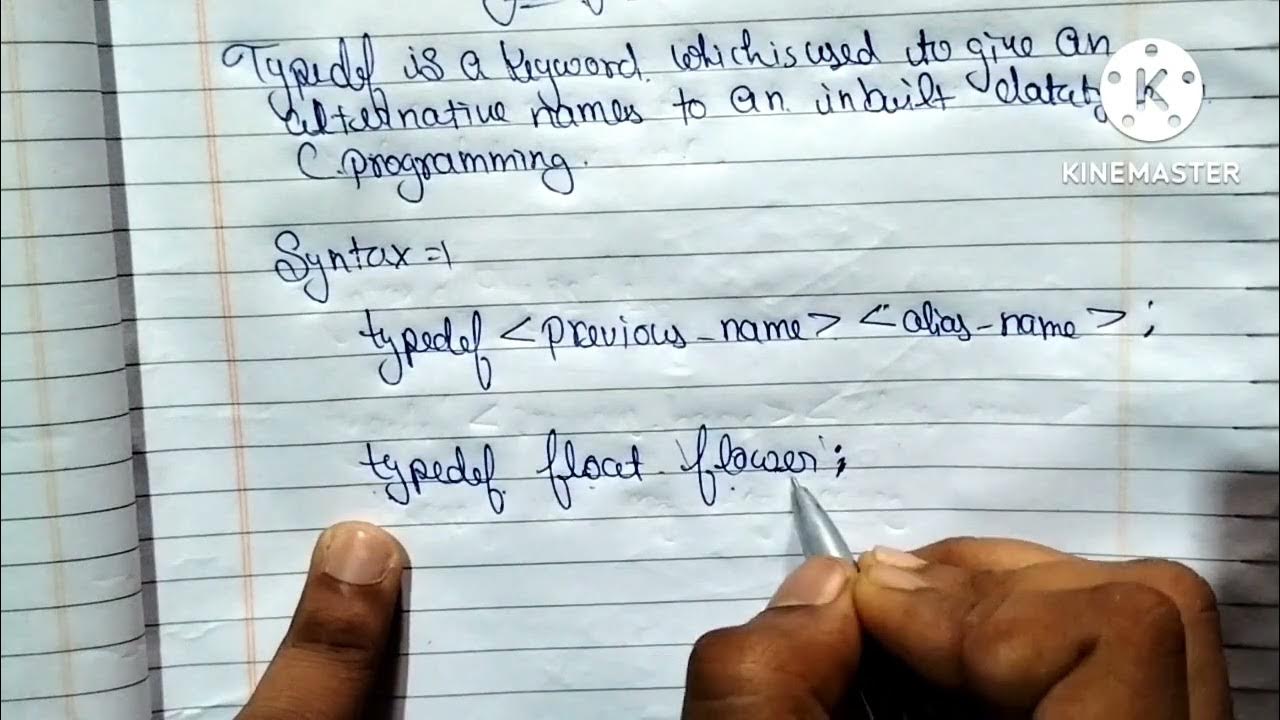 Typedef is a keyword. which is used to give an
alternative names to an inbuilt
C. programming.
K
KINEMASTER
Syntax =
typedef <previous_name> <alias_name>;
typedef float flower;